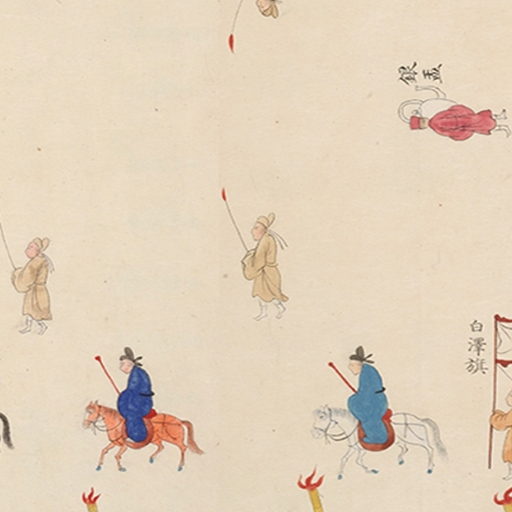 銀盂
白澤旗